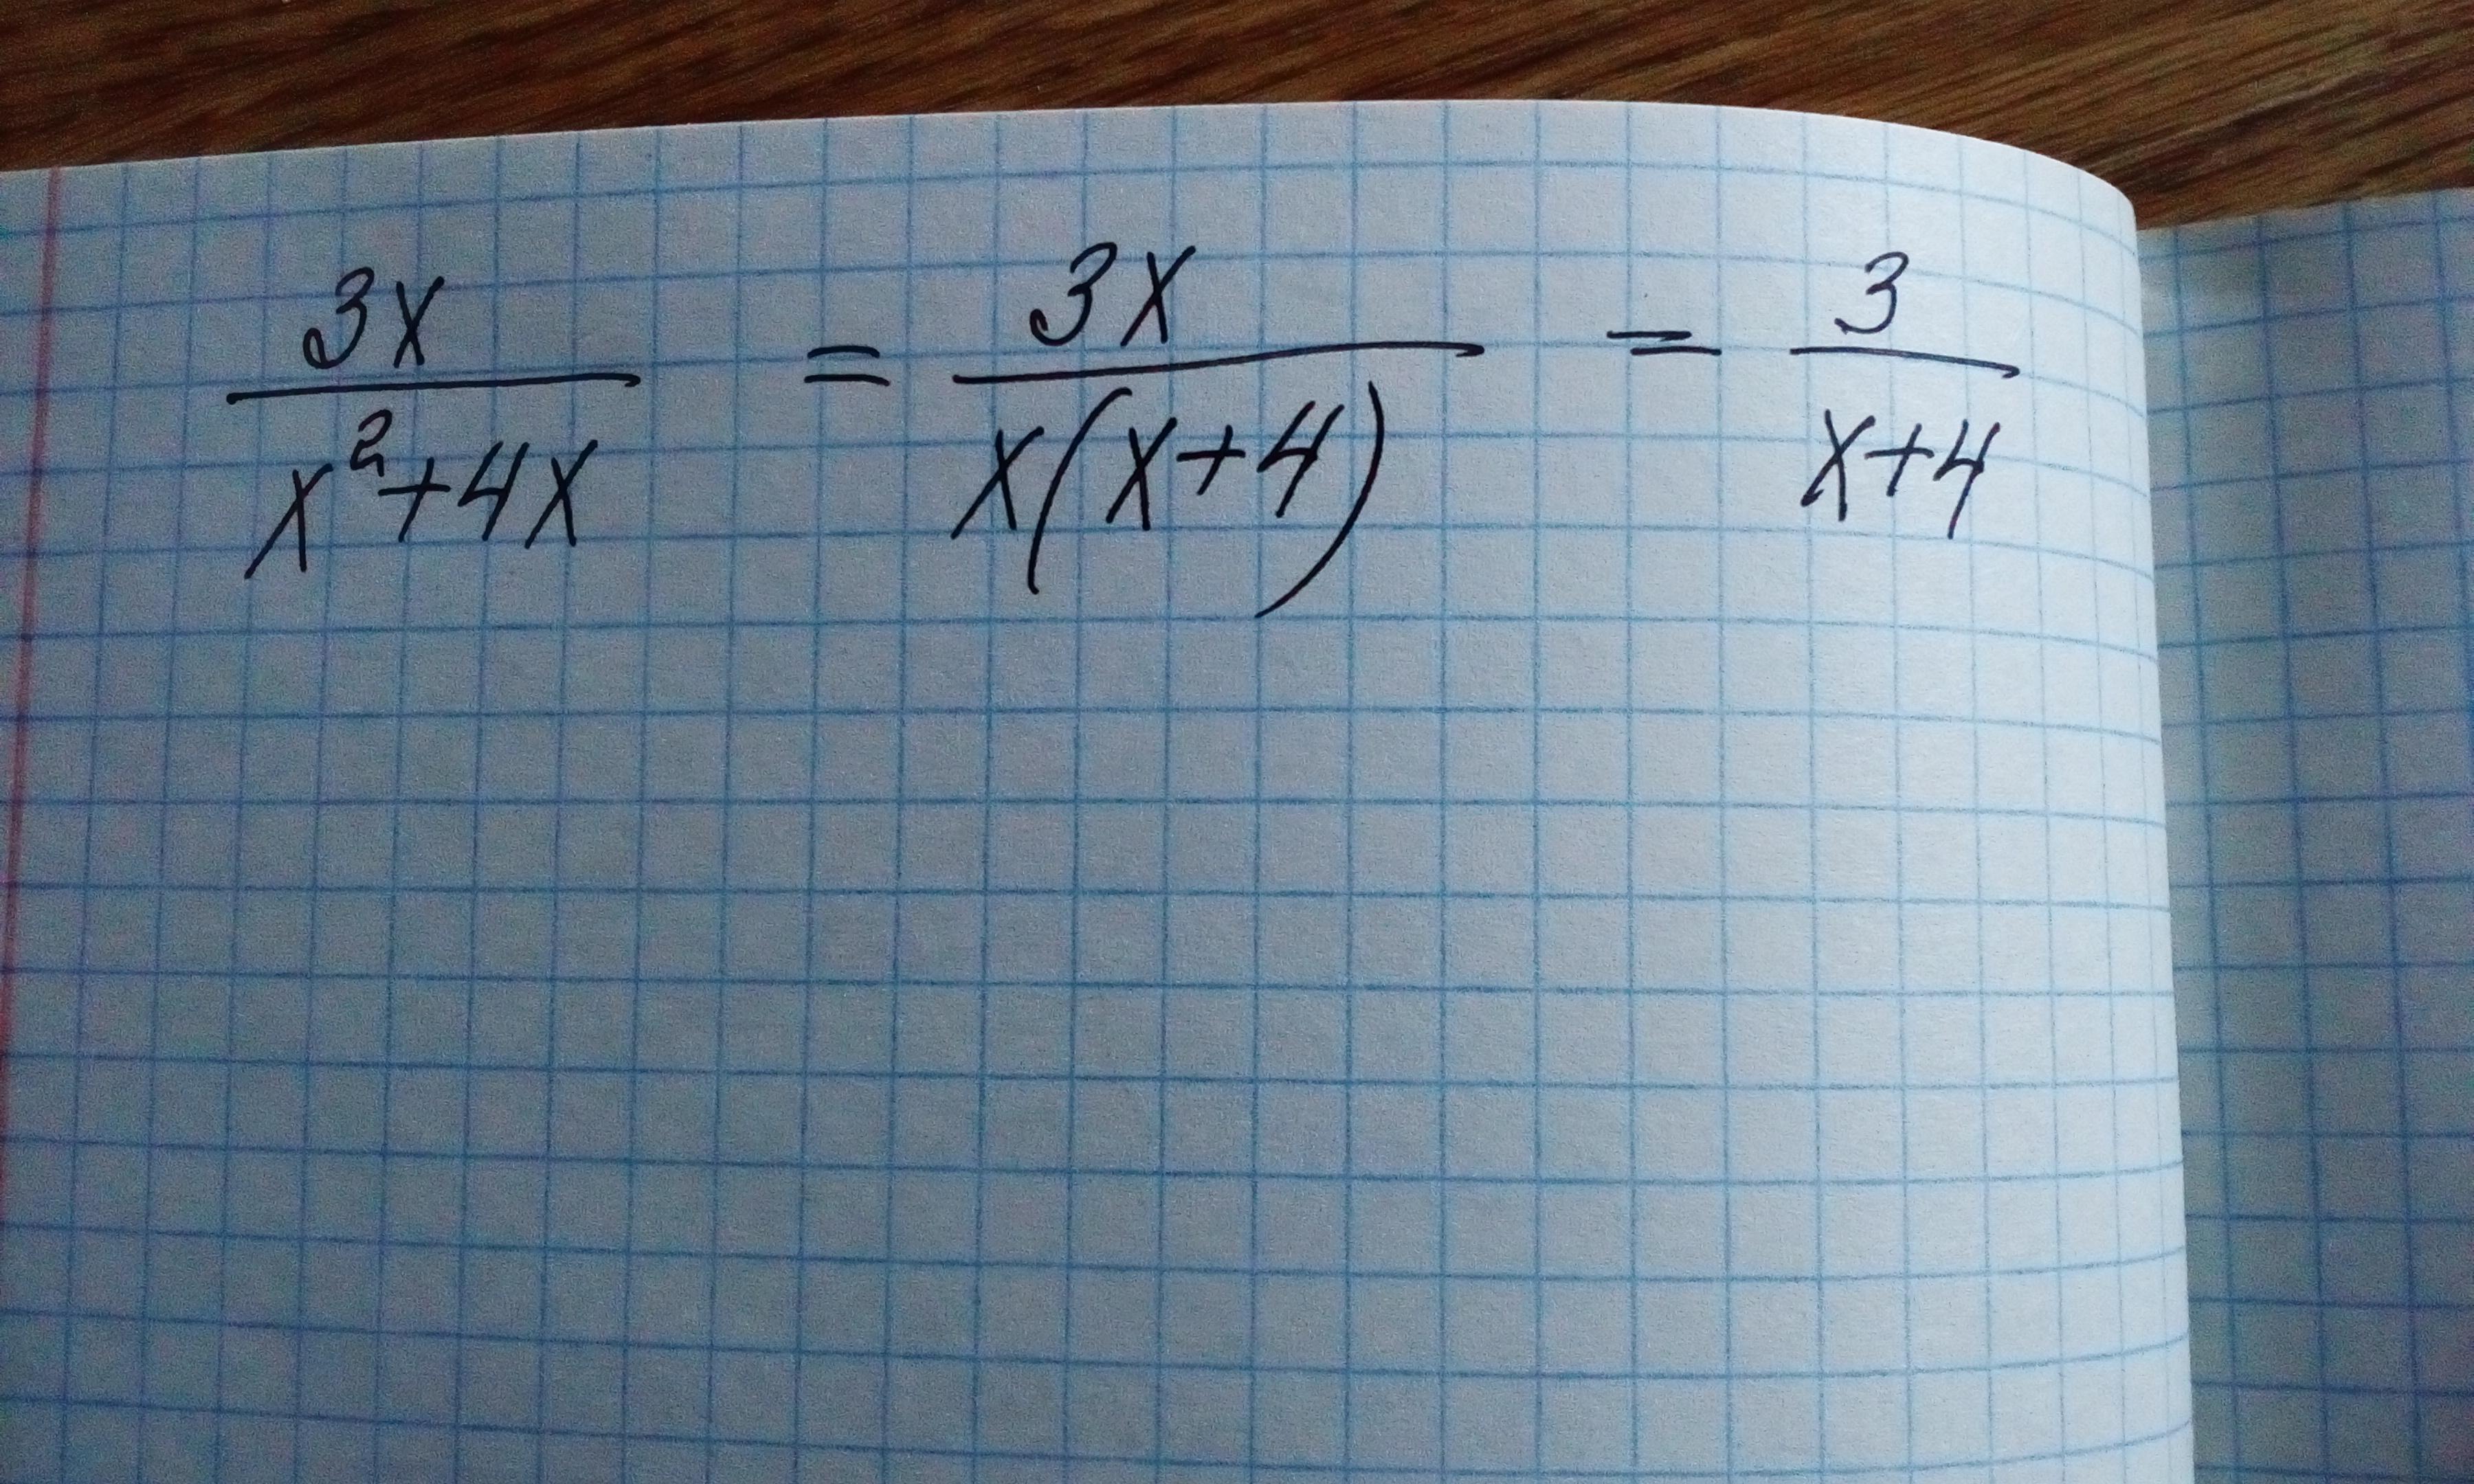 3x/(x²+4x) = 3x/(x(x+4)) = 3/(x+4)